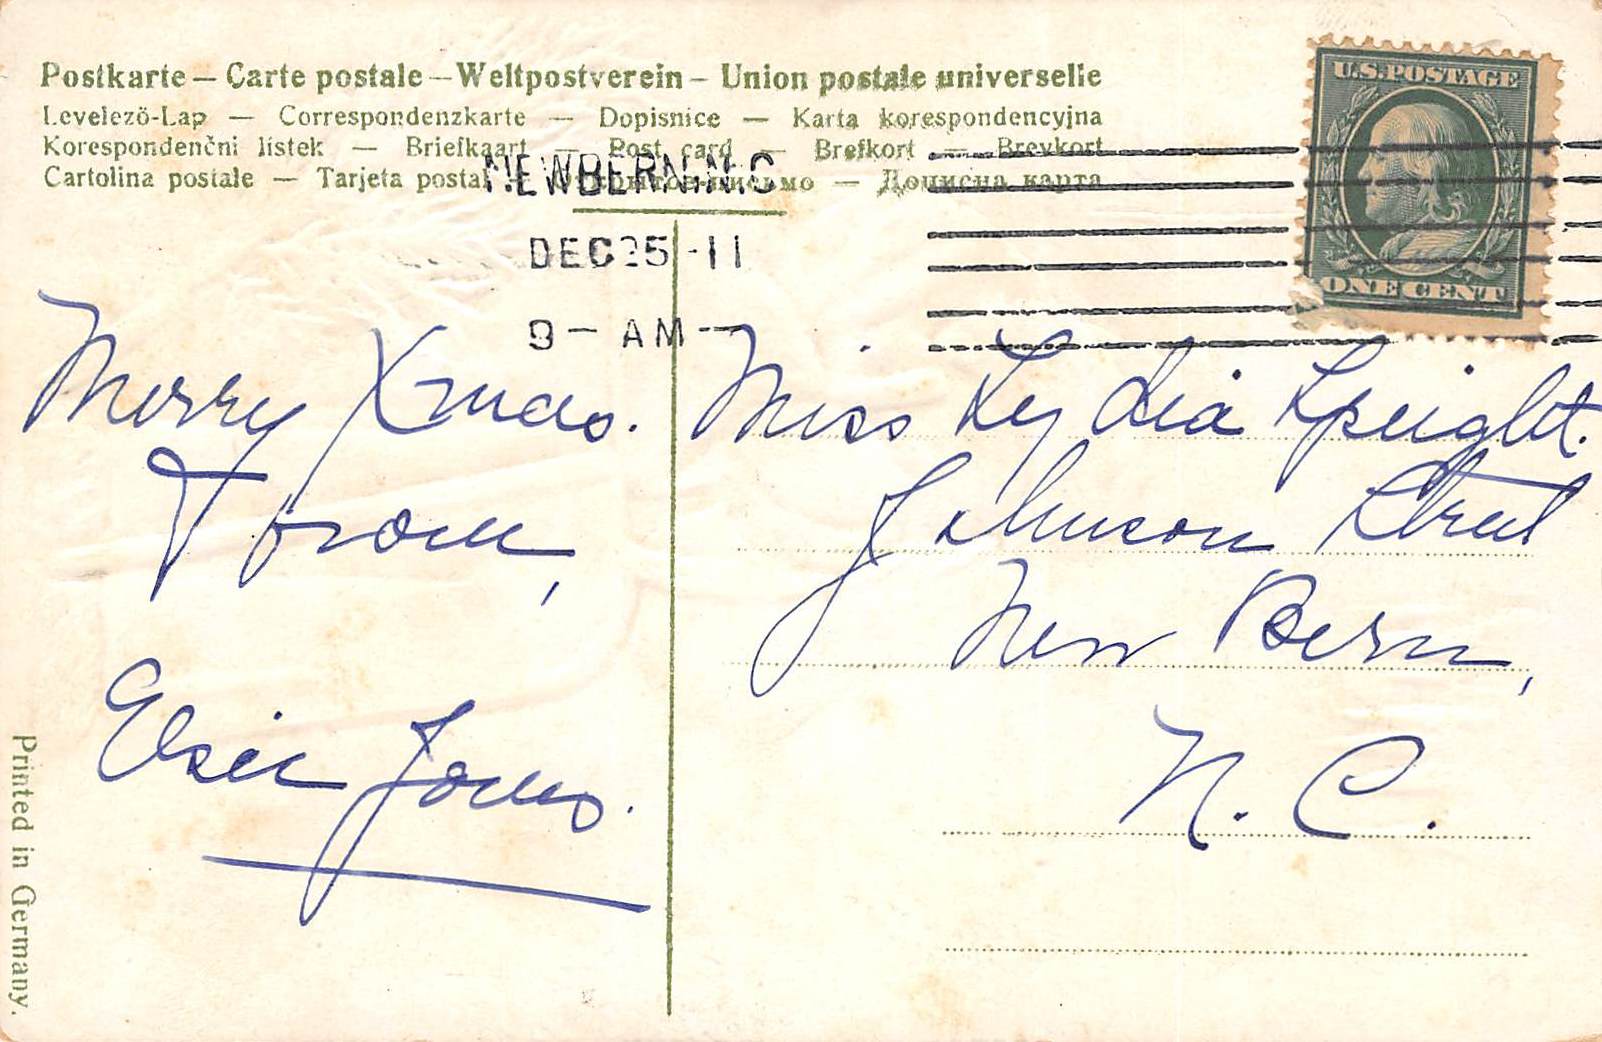 Postkarte — Carte postale — Weltpostverein — Union postale universelle
Levelező-Lap — Correspondenzkarte — Dopisnice — Karta korespondencyjna
Korespondenčni lístek — Briefkaart — Post card — Brefkort — Brevkort
Cartolina postale — Tarjeta postal — письмо — Дописна карта
U.S. POSTAGE
ONE CENT
NEWBERN. N.C
DEC 25 - 11
9 - AM -
Merry Xmas.
From,
Elsie Jones.
Miss Lydia Speight.
Johnson Street
New Bern,
N. C.
Printed in Germany.